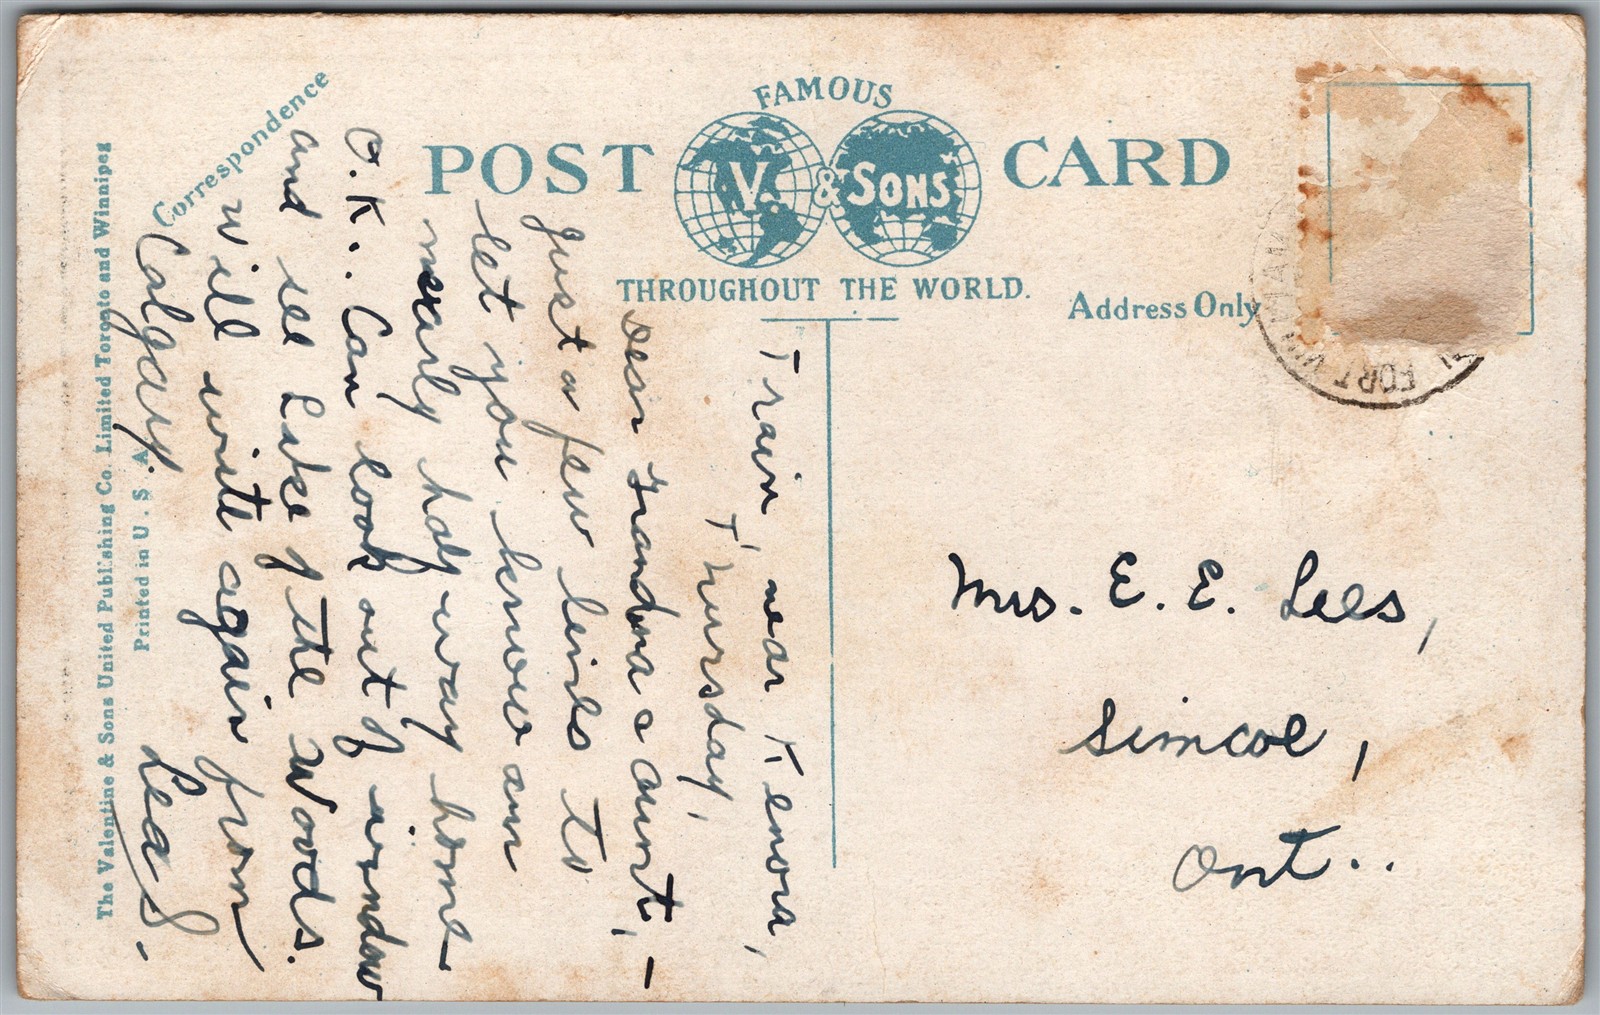 FAMOUS
POST CARD
V. & SONS
THROUGHOUT THE WORLD.
Correspondence
Address Only
Train, near Kenora,
Thursday,
Dear Grandma & Aunt, —
Just a few lines to
let you know am
nearly half way home
O.K.. Can look out of window
and see Lake of the Woods.
Will write again from
Calgary. Leas.
Mrs. E. E. Lees,
Simcoe,
Ont..
FORT
The Valentine & Sons United Publishing Co. Limited Toronto and Winnipeg
Printed in U.S.A.